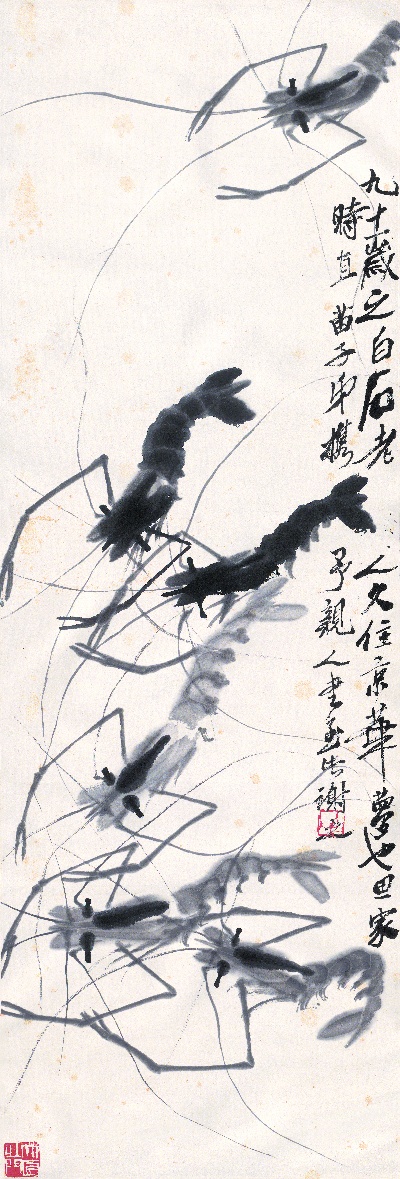 九十歲之白石老人久住京華夢也思家
時直苗子弟攜予親人書至出謝之